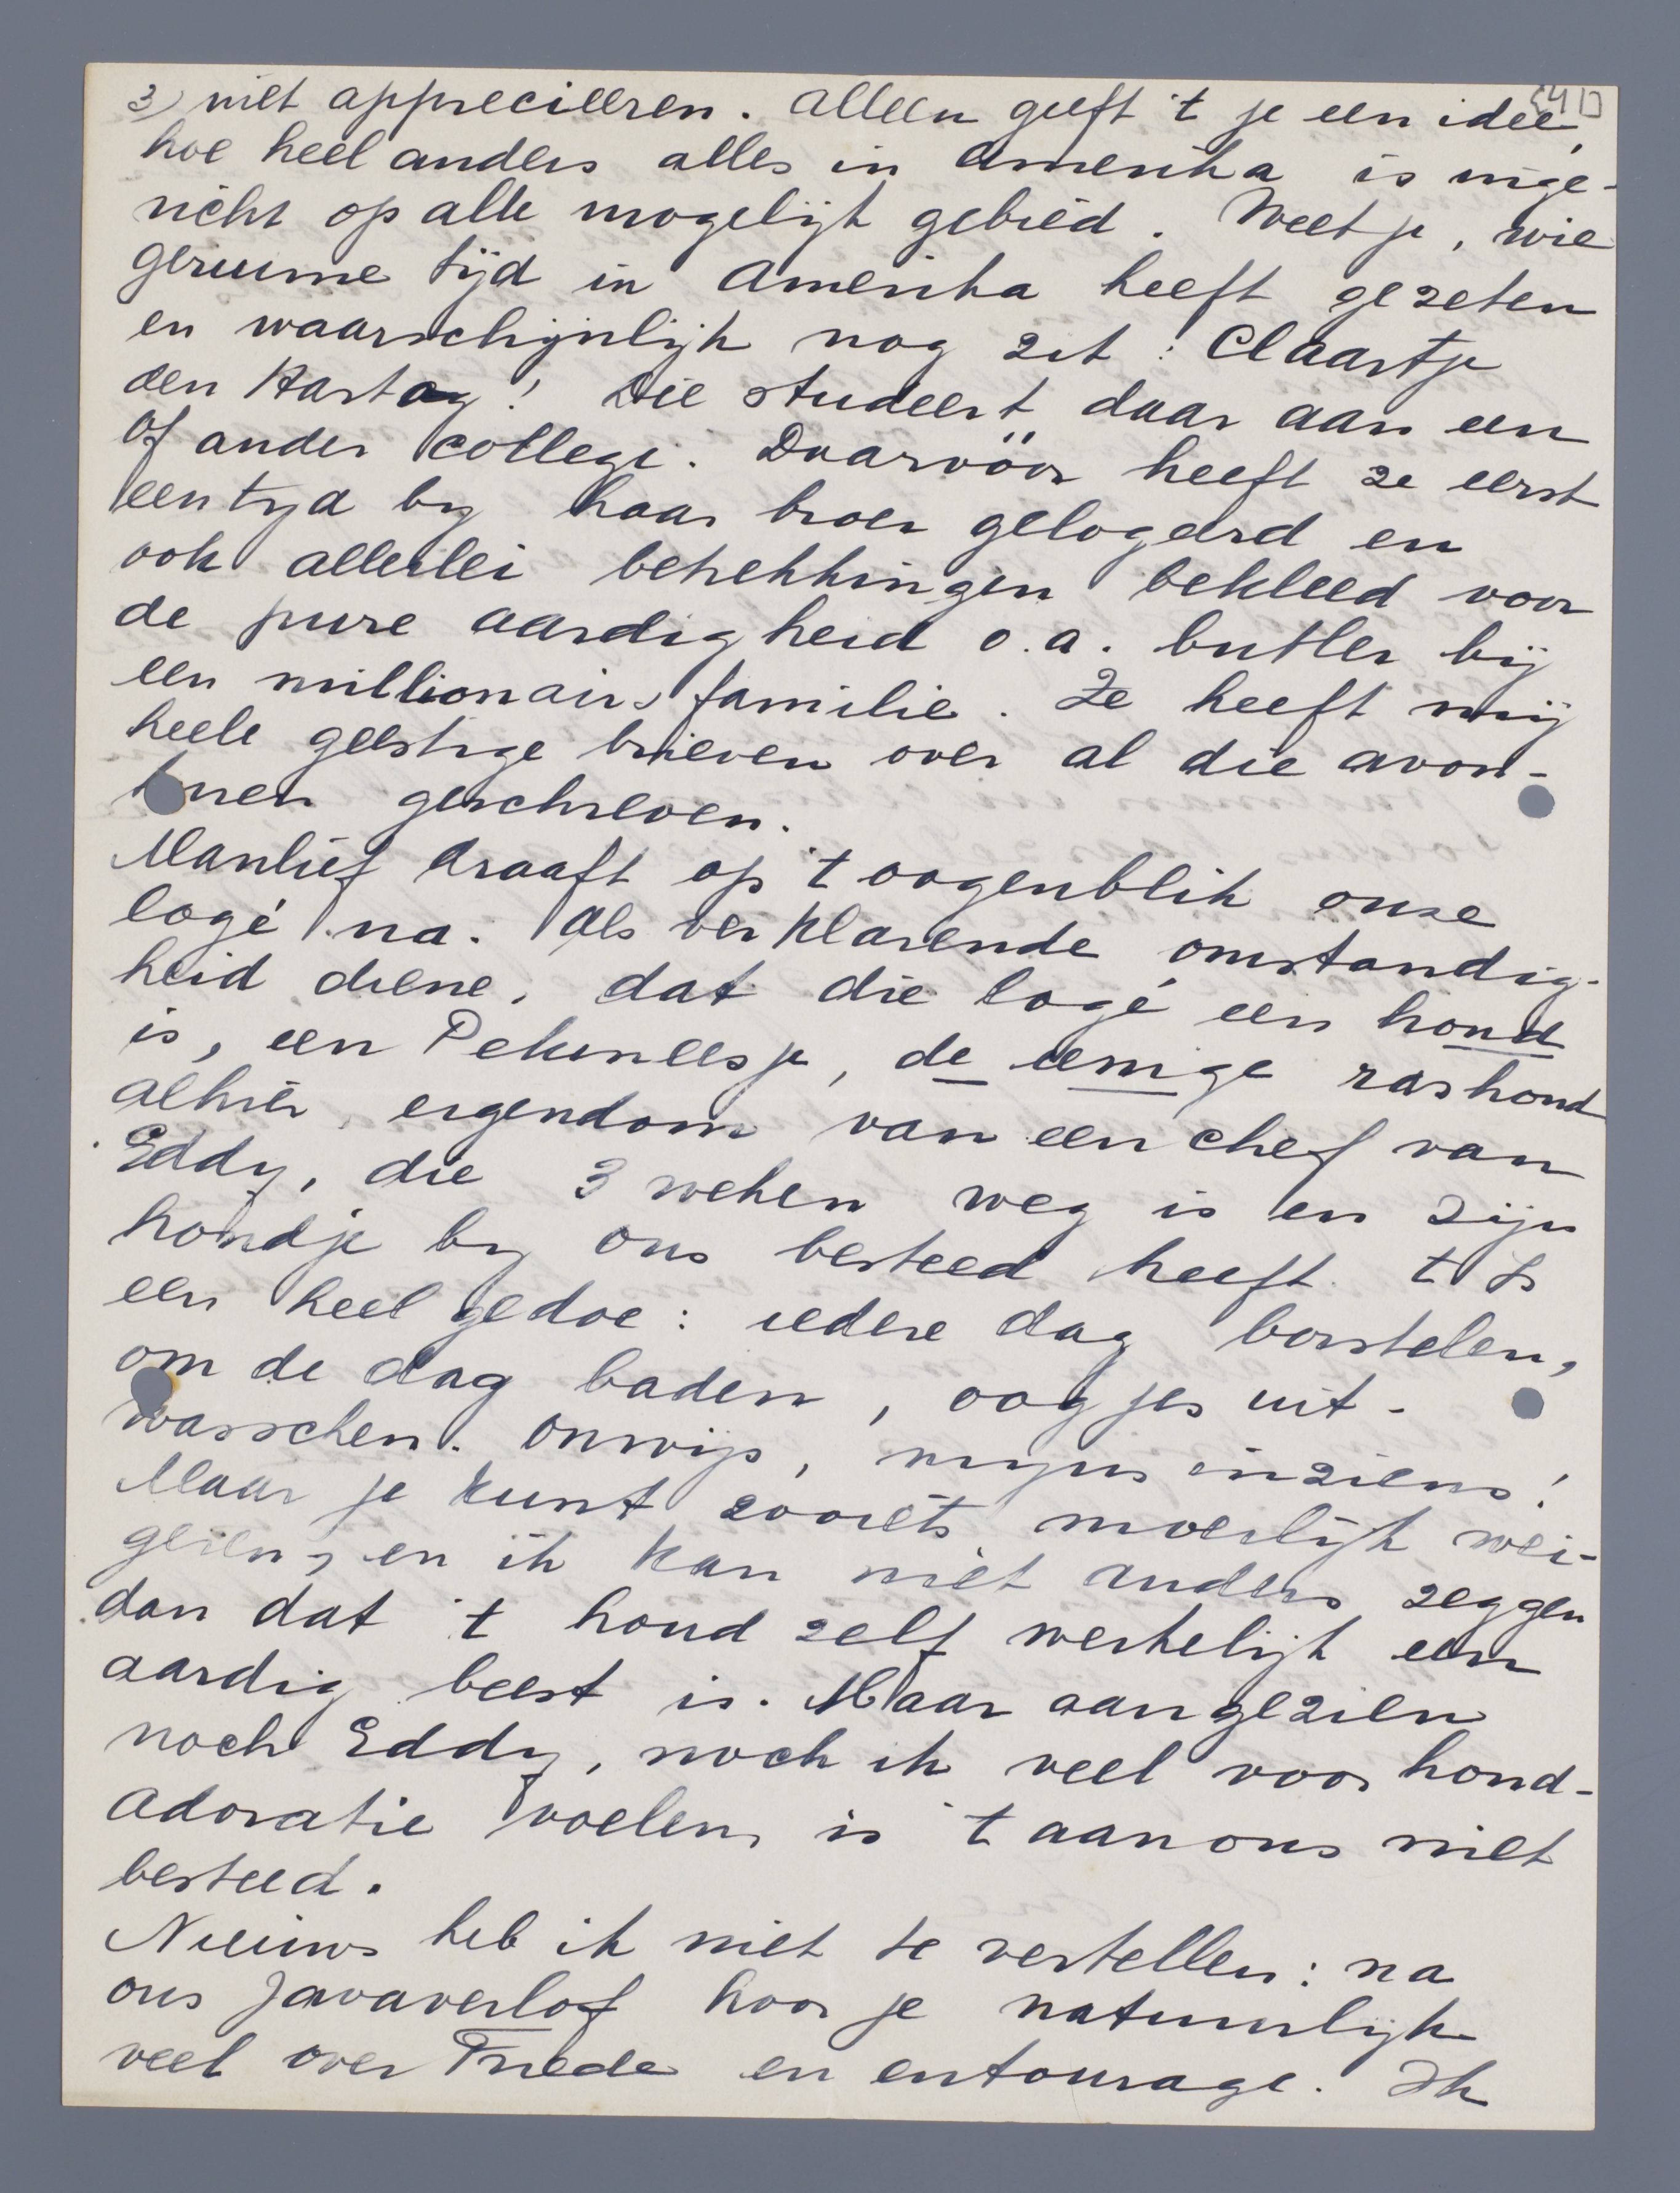 3) niet apprecieeren. Alleen geeft 't je een idee, [41]
hoe heel anders alles in Amerika is inge-
richt op alle mogelijk gebied. Weet je, wie
geruime tijd in Amerika heeft gezeten
en waarschijnlijk nog zit: Claartje
den Hartog! Die studeert daar aan een
of ander college. Daarvóór heeft ze eerst
een tijd bij haar broer gelogeerd en
ook allerlei betrekkingen bekleed voor
de pure aardigheid o.a. butler bij
een millionairs familie. Ze heeft mij
heele geestige brieven over al die avon-
turen geschreven.
Manlief draaft op 't oogenblik onze
logé na. Als verklarende omstandig-
heid diene, dat die logé een hond
is, een Pekineesje, de eenige rashond
alhier, eigendom van een chef van
Eddy, die 3 weken weg is en zijn
hondje bij ons besteed heeft. t Is
een heel gedoe: iedere dag borstelen,
om de dag baden, oogjes uit-
wasschen. Onwijs, mijns inziens!
Maar je kunt zooiets moeilijk wei-
geren, en ik kan niet anders zeggen
dan dat 't hond zelf werkelijk een
aardig beest is. Maar aangezien
noch Eddy, noch ik veel voor hond-
adoratie voelen, is 't aan ons niet
besteed.
Nieuws heb ik niet te vertellen: na
ons Javaverlof hoor je natuurlijk
veel over Friede en entourage. Ik